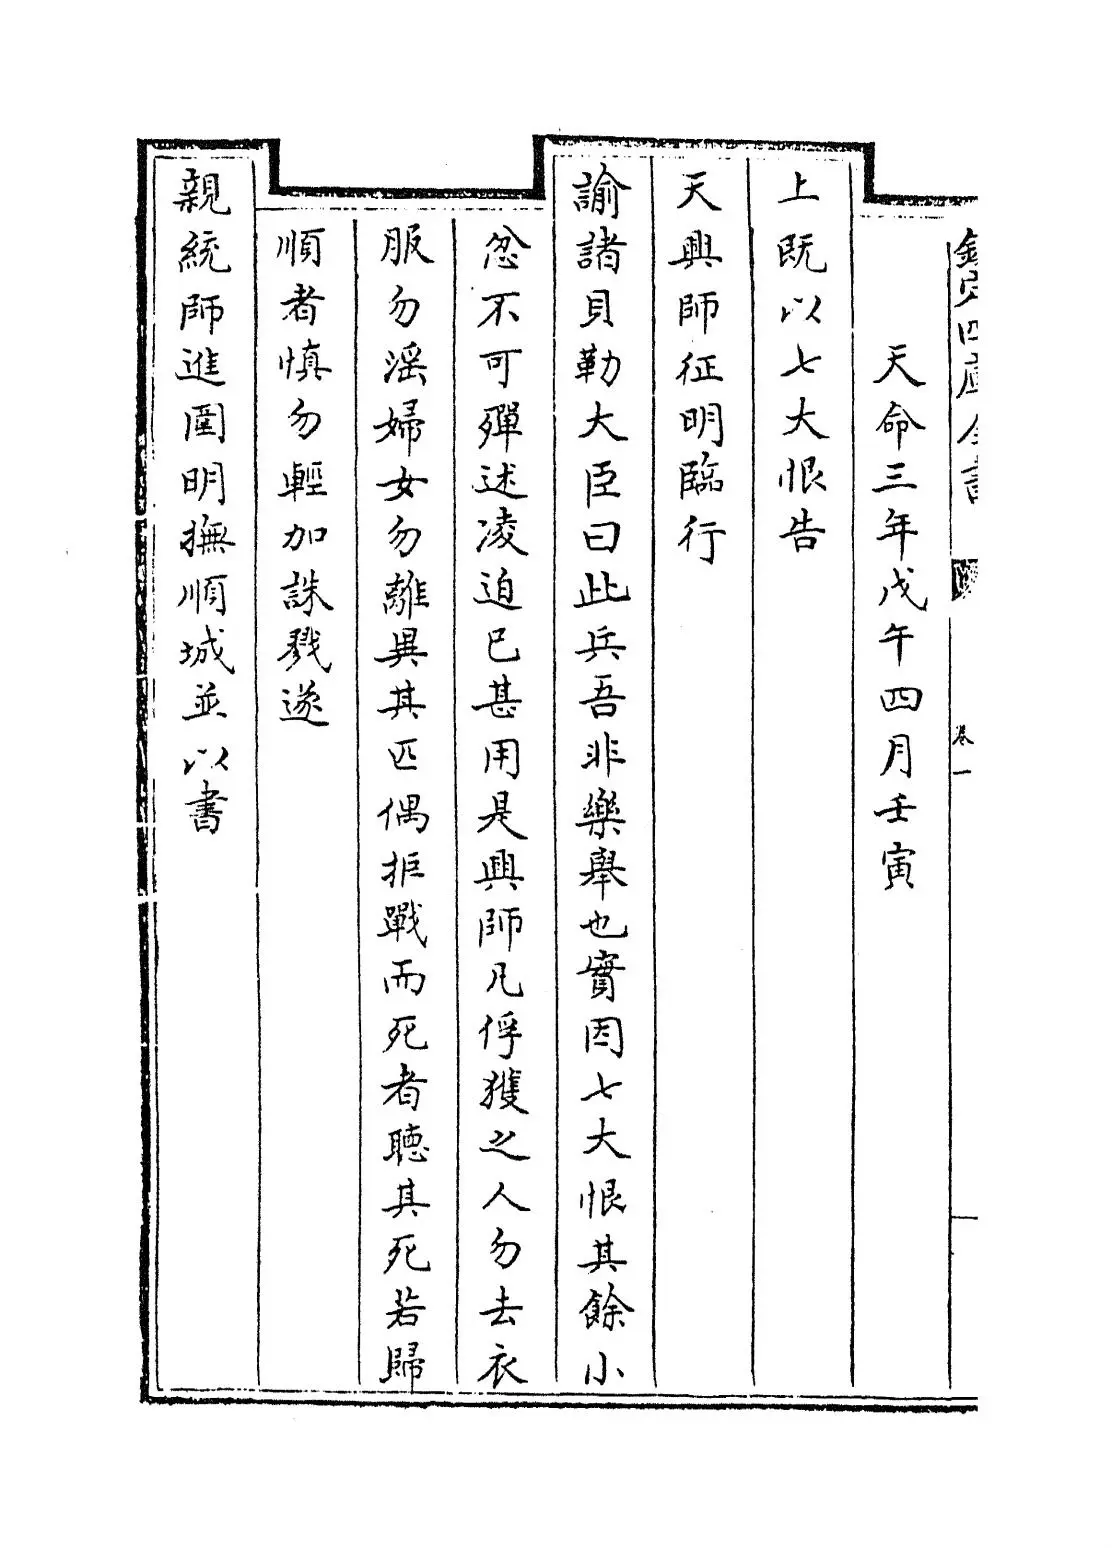 欽定四庫全書
卷一
天命三年戊午四月壬寅
上既以七大恨告
天興師征明臨行
諭諸貝勒大臣曰此兵吾非樂舉也實因七大恨其餘小
忿不可殫述凌迫已甚用是興師凡俘獲之人勿去衣
服勿滛婦女勿離異其匹偶拒戰而死者聽其死若歸
順者慎勿輕加誅戮遂
親統師進圍明撫順城並以書